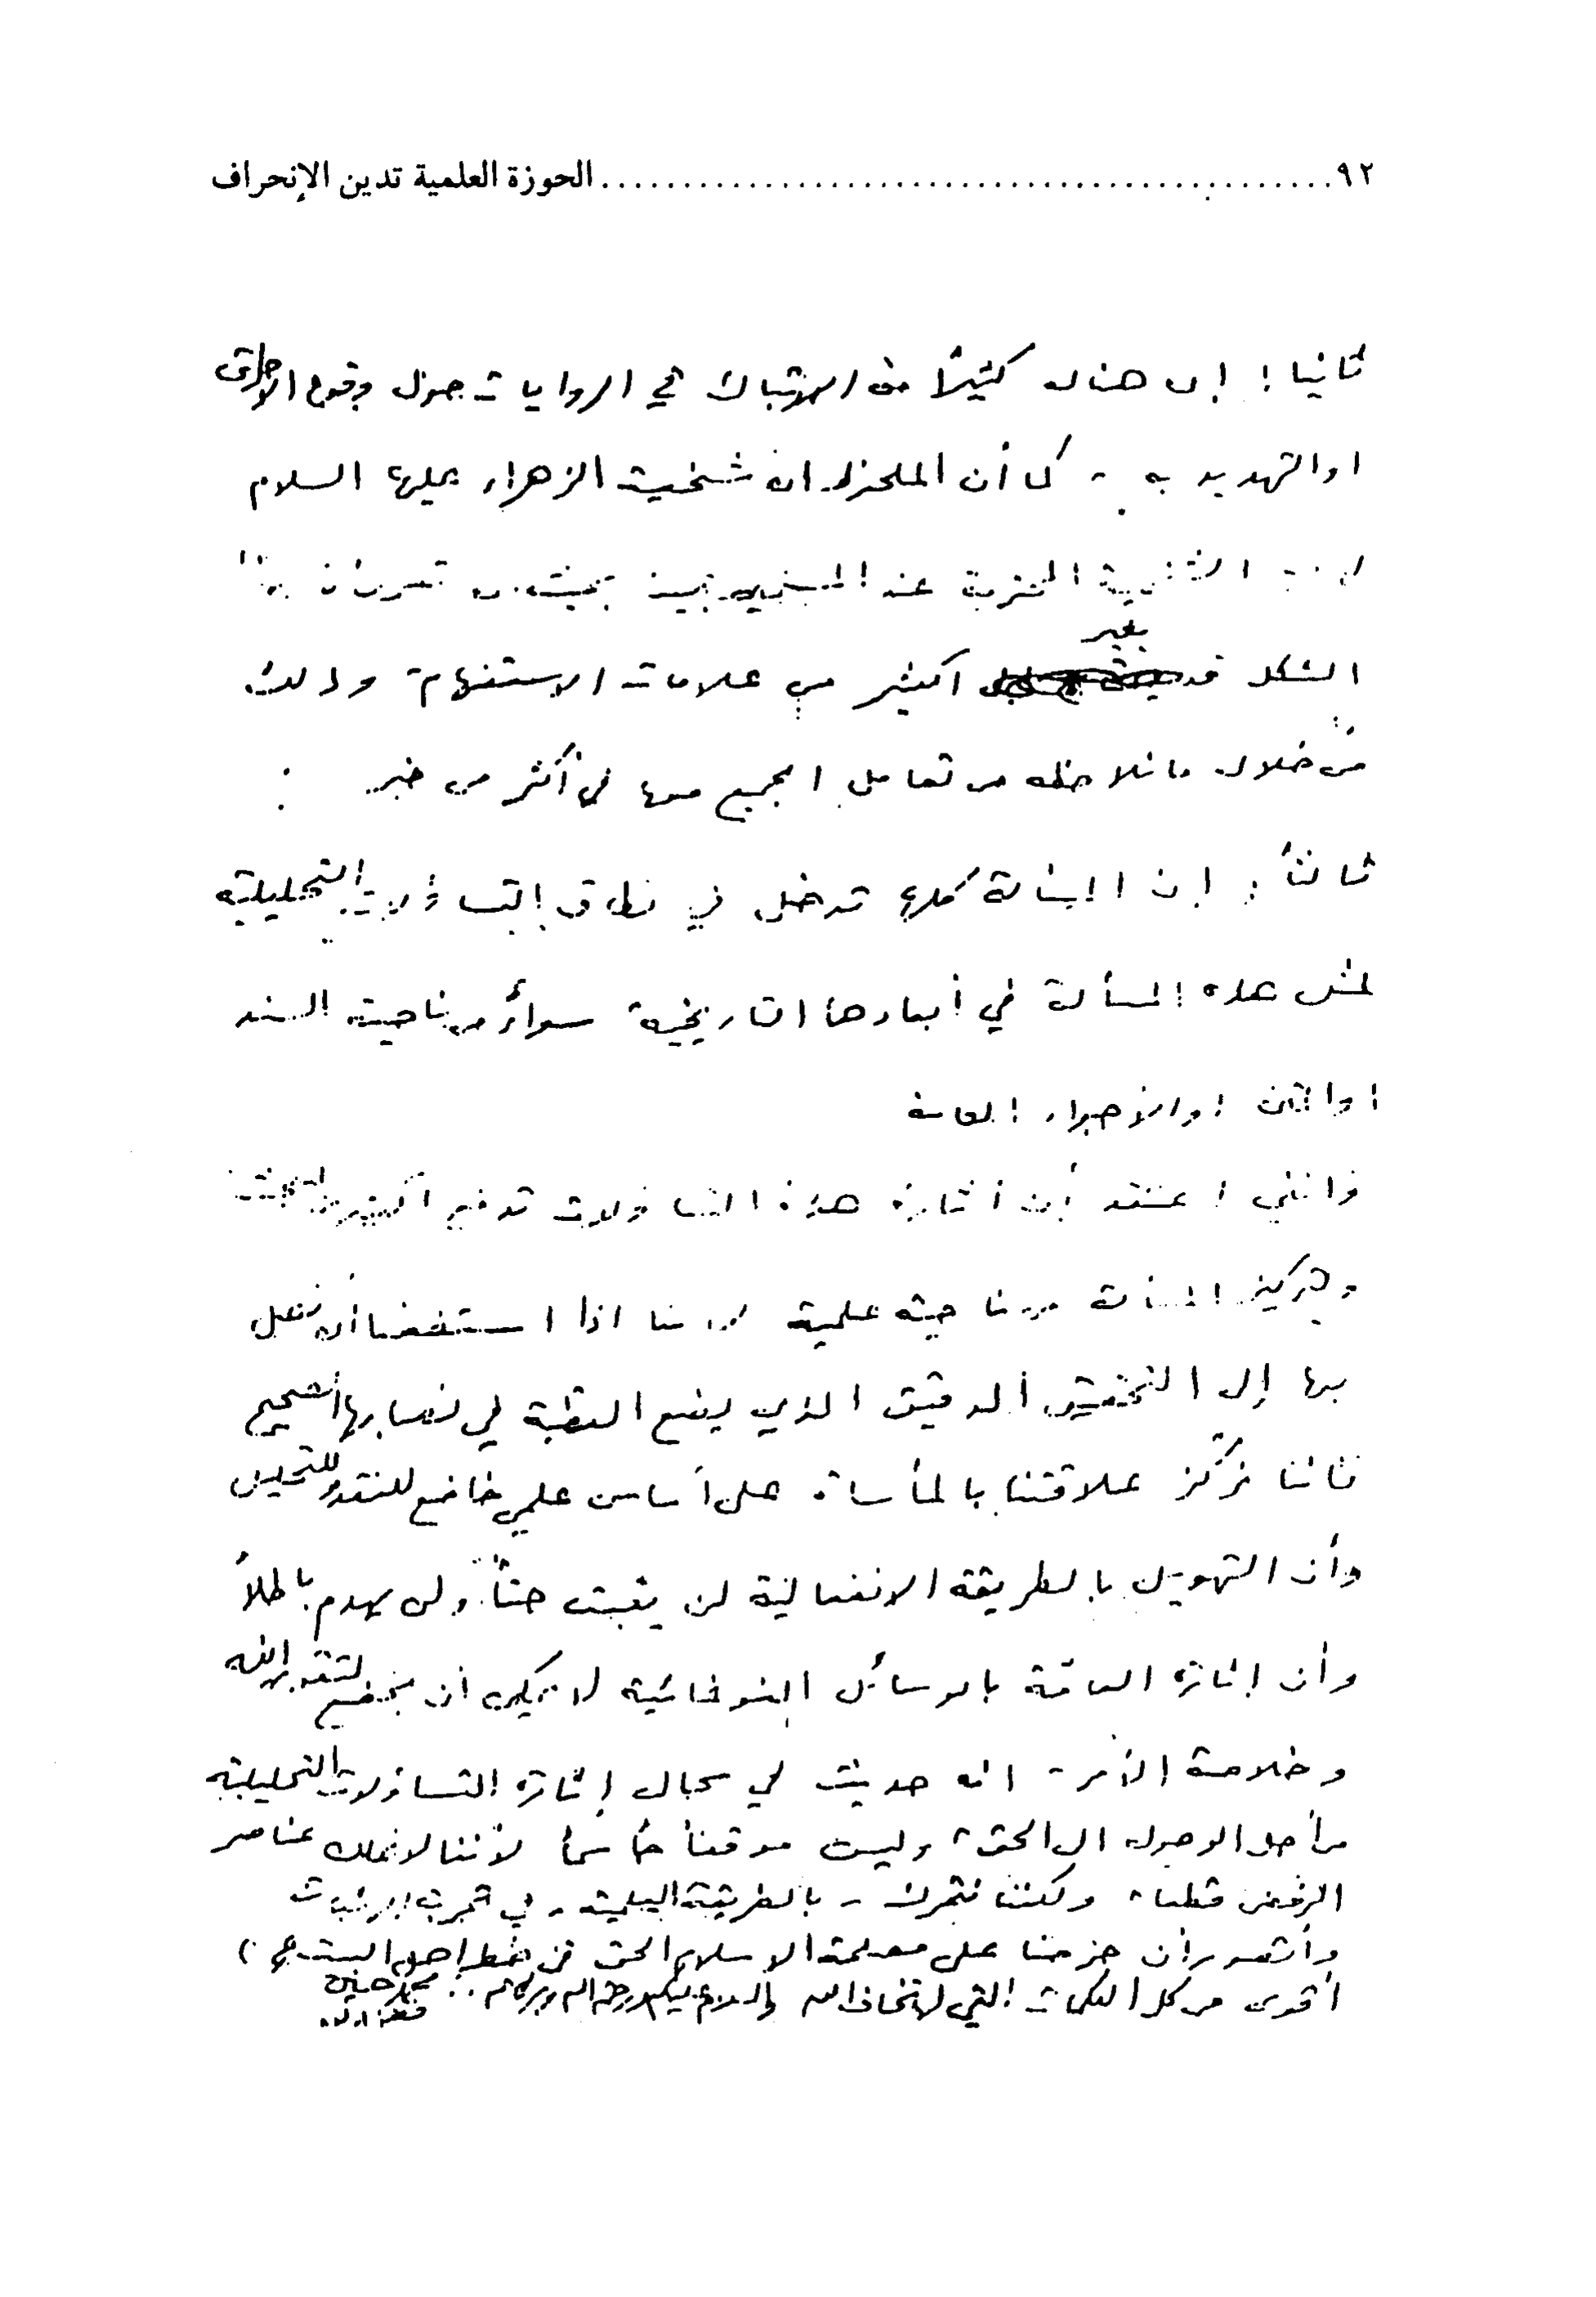 ٩٢ ............................................. الحوزة العلمية تدين الإنحراف
ثانيا: إن هناك كثيراً من الارتباك في الروايات حول وقوع الاحراق
او التهديد به - كما أن الملحوظ ان شخصية الزهراء عليها السلام
الشخصية المحترمة عند المسلمين جميعاً بحيث ان التعرض لها بهذا
الشكل قد يغير اكثر من علامات الاستفهام وذلك
من خلال ما نلاحظه من تعامل الجميع معها في أكثر من خبر
ثالثاً: إن المسألة كلها تدخل في نطاق التساؤلات التحليلية
لمثل هذه المسألة في أبعادها التاريخية سواءً من ناحية السند
او المتن او الأجواء العامة
وانني اعتقد أن اثارة هذه التساؤلات تدفع اكثر
وتركيز المسألة من ناحية علمية لاننا اذا استطعنا أن نصل
بها إلى التحقيق الدقيق الذي يضع القضية في نصابها الصحيح
فاننا نركز علاقتنا بالمأساة على أساس علمي خاضع للنقد والتحليل
وأن التهويل بالطريقة الانفعالية لن يثبت حقاً ولن يهدم باطلاً
وأن إثارة العامة بالوسائل الغوغائية لا يمكن ان يخضع لتقوى الله
وخلاصة الأمر - انه حديث في مجال إثارة التساؤلات التحليلية
من أجل الوصول الى الحق، وليست موقفاً حاسماً لأننا لا نملك عناصر
الرفض قطعاً، ولكننا نتحرك - بالطريقة العلمية - في
وأتصور أن حرصنا على مصلحة الاسلام الحق في خط اهل البيت (ع)
أقوى من كل الكلمات التي لا تخاف الله والسلام عليكم ورحمة الله وبركاته..
محمد حسين
فضل الله